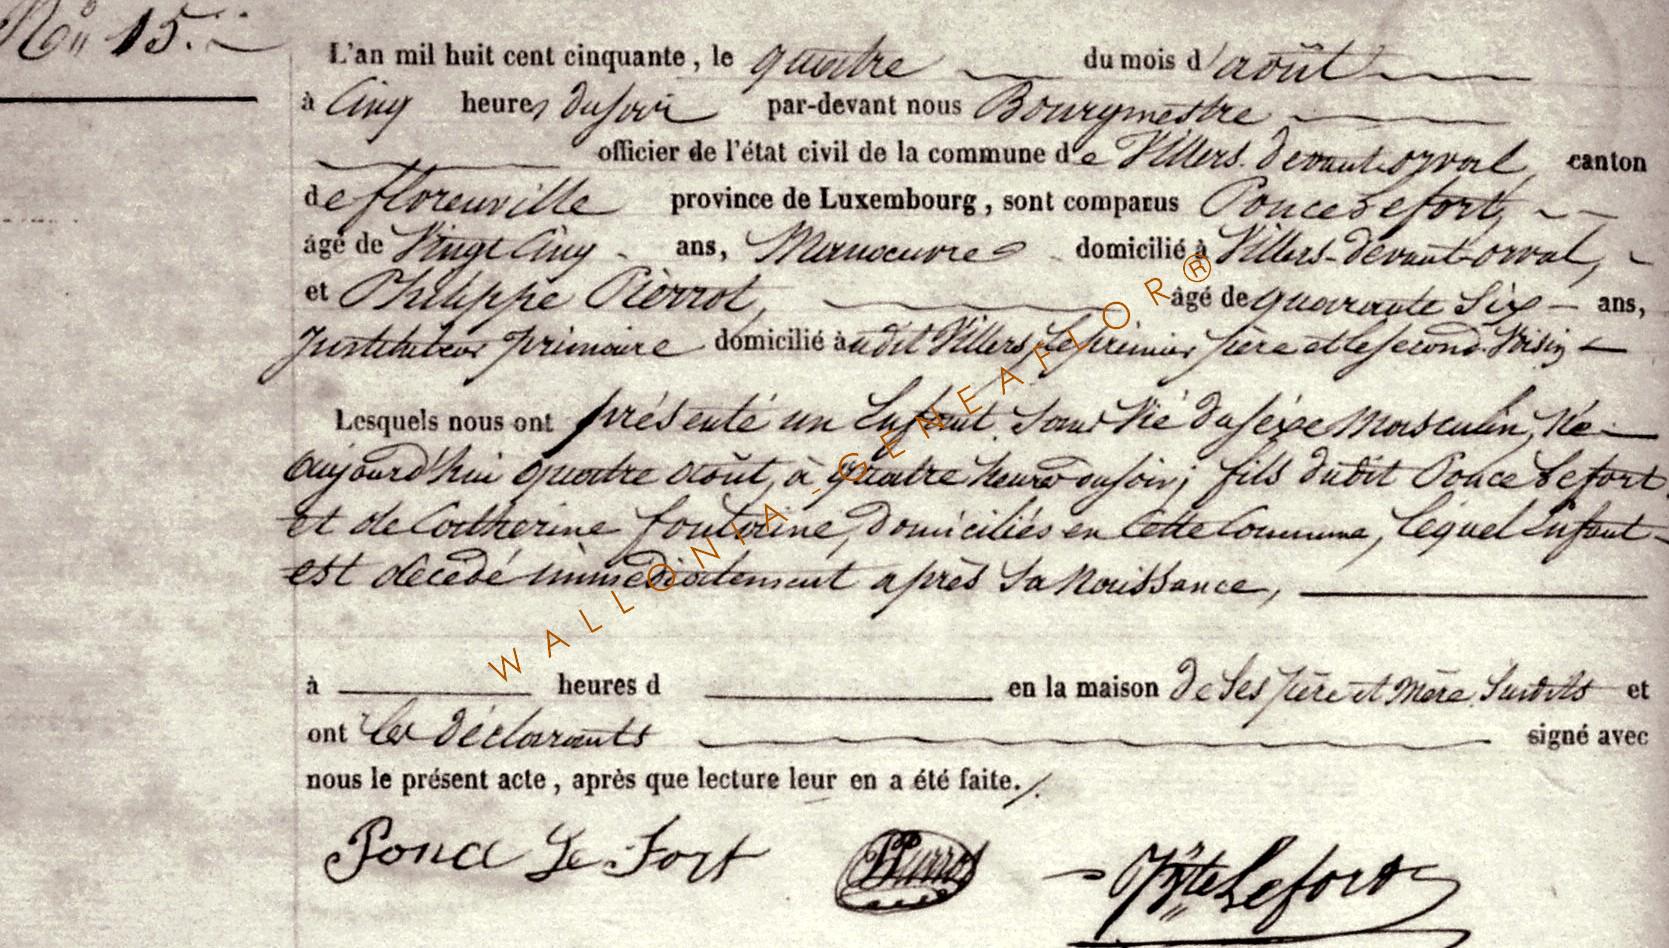 N° 15.
L'an mil huit cent cinquante, le quatre du mois d'août
à Cinq heures du soir par-devant nous Bourgmestre
officier de l'état civil de la commune de Villers-devant-orval, canton
de florenville province de Luxembourg, sont comparus Ponce Lefort,
âgé de Vingt Cinq ans, Manoeuvre domicilié à Villers-devant-orval,
et Philippe Pierrot, âgé de quarante Six ans,
Instituteur primaire domicilié audit Villers, Le premier père et le second Voisin
Lesquels nous ont présenté un Enfant Sans Vie du séxe Masculin, Né
aujourd'hui quatre août, à quatre heures du soir; fils dudit Ponce Lefort
et de Catherine fontaine, domiciliés en Cette Commune, lequel Enfant
est décédé immédiatement après Sa Naissance,
à heures d en la maison de Ses père et Mère Susdits et
ont les déclarants signé avec
nous le présent acte, après que lecture leur en a été faite./.
Ponce Le Fort Pierrot Lefort
WALLONIA-GENEAFLOR®